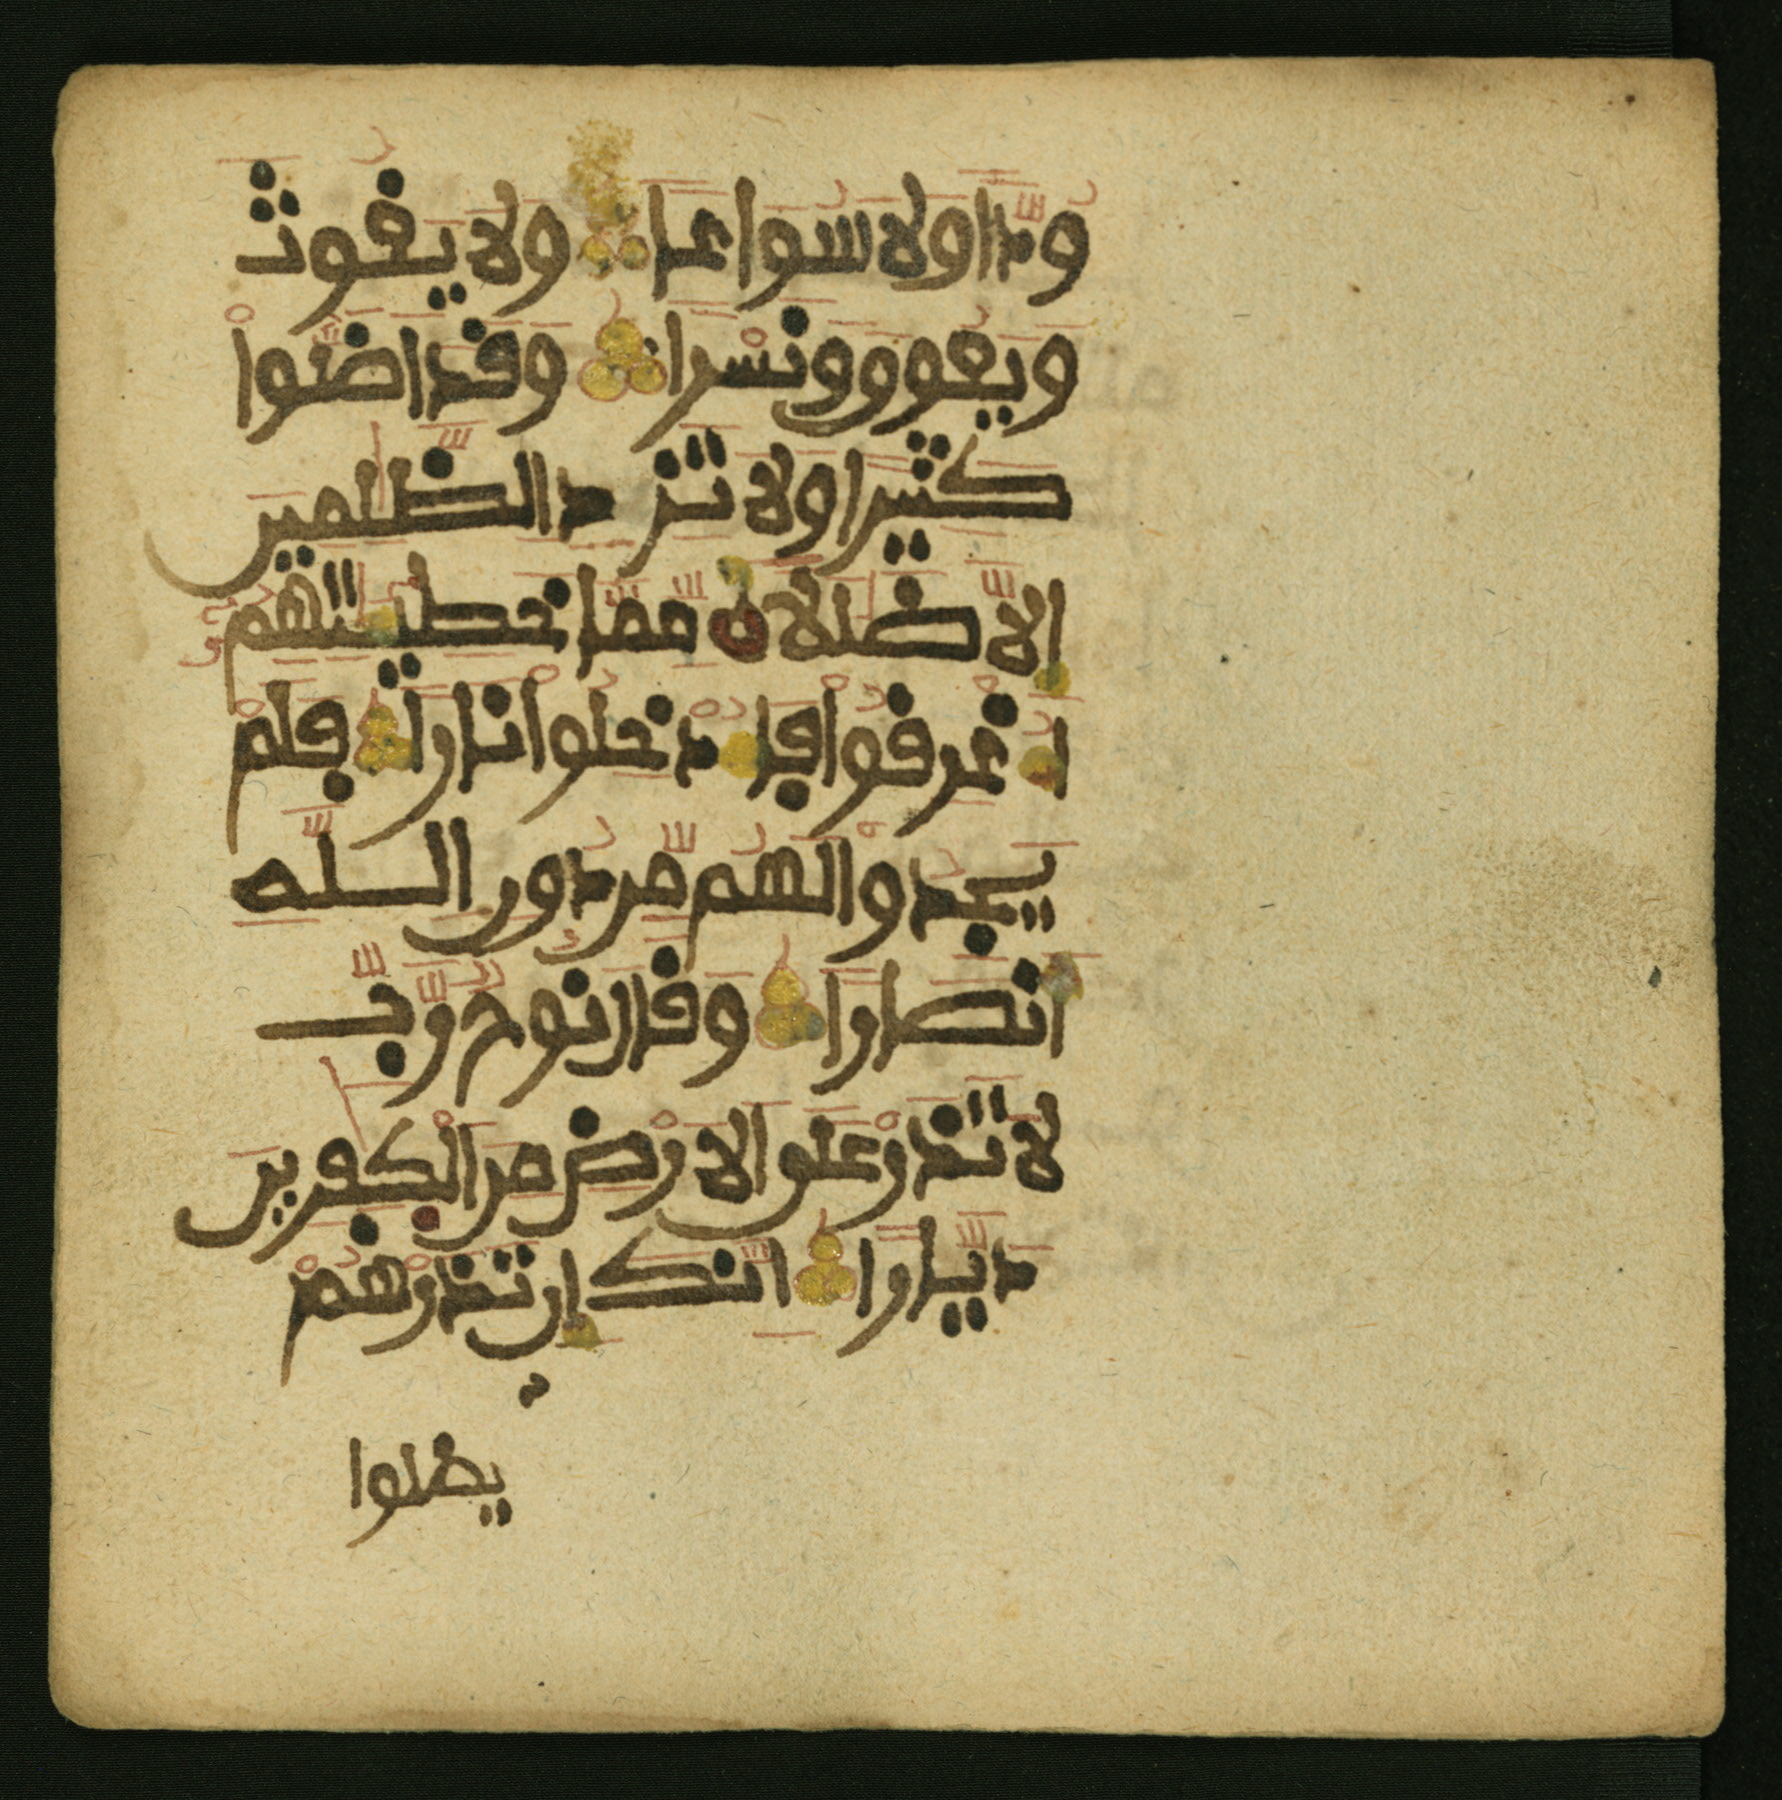 ودا ولا سواعا ولا يغوث
ويعوق ونسرا وقد اضلوا
كثيرا ولا تزد الظلمين
الا ضللا مما خطيتهم
اغرقوا فادخلوا نارا فلم
يجدوا لهم من دون الله
انصارا وقال نوح رب
لا تذر على الارض من الكفرين
ديارا انك ان تذرهم
يضلوا